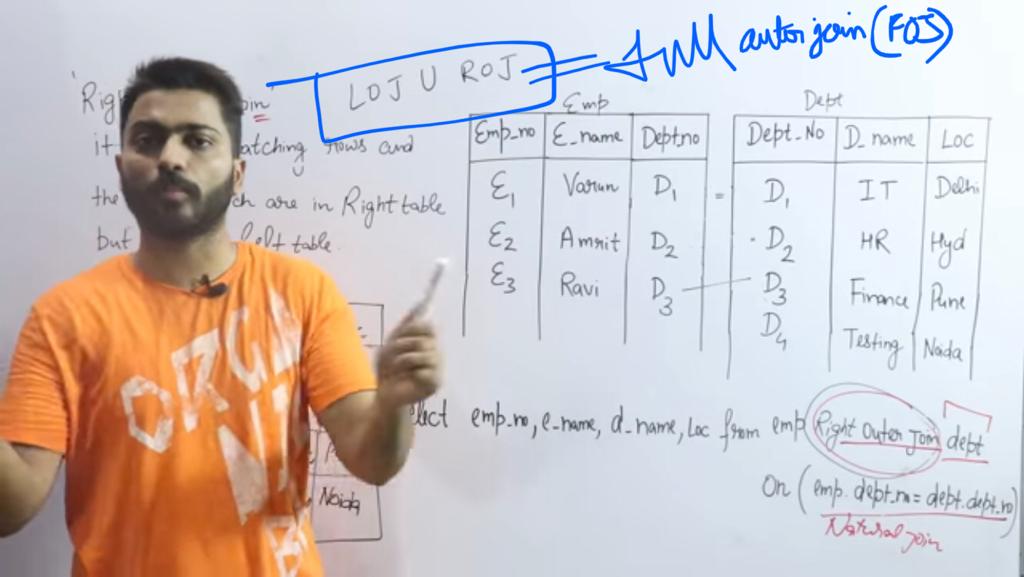 LOJ U ROJ = full outer join (FOJ)
it atching rows and
the ch are in Right table
but left table.
Emp
Emp_no E_name Dept_no
E1 Varun D1
E2 Amrit D2
E3 Ravi D3
=
Dept
Dept_No D_name Loc
D1 IT Delhi
D2 HR Hyd
D3 Finance Pune
D4 Testing Noida
elect emp_no, e_name, d_name, Loc from emp Right Outer Join dept
On (emp.dept_no = dept.dept_no)
Natural join
Noida